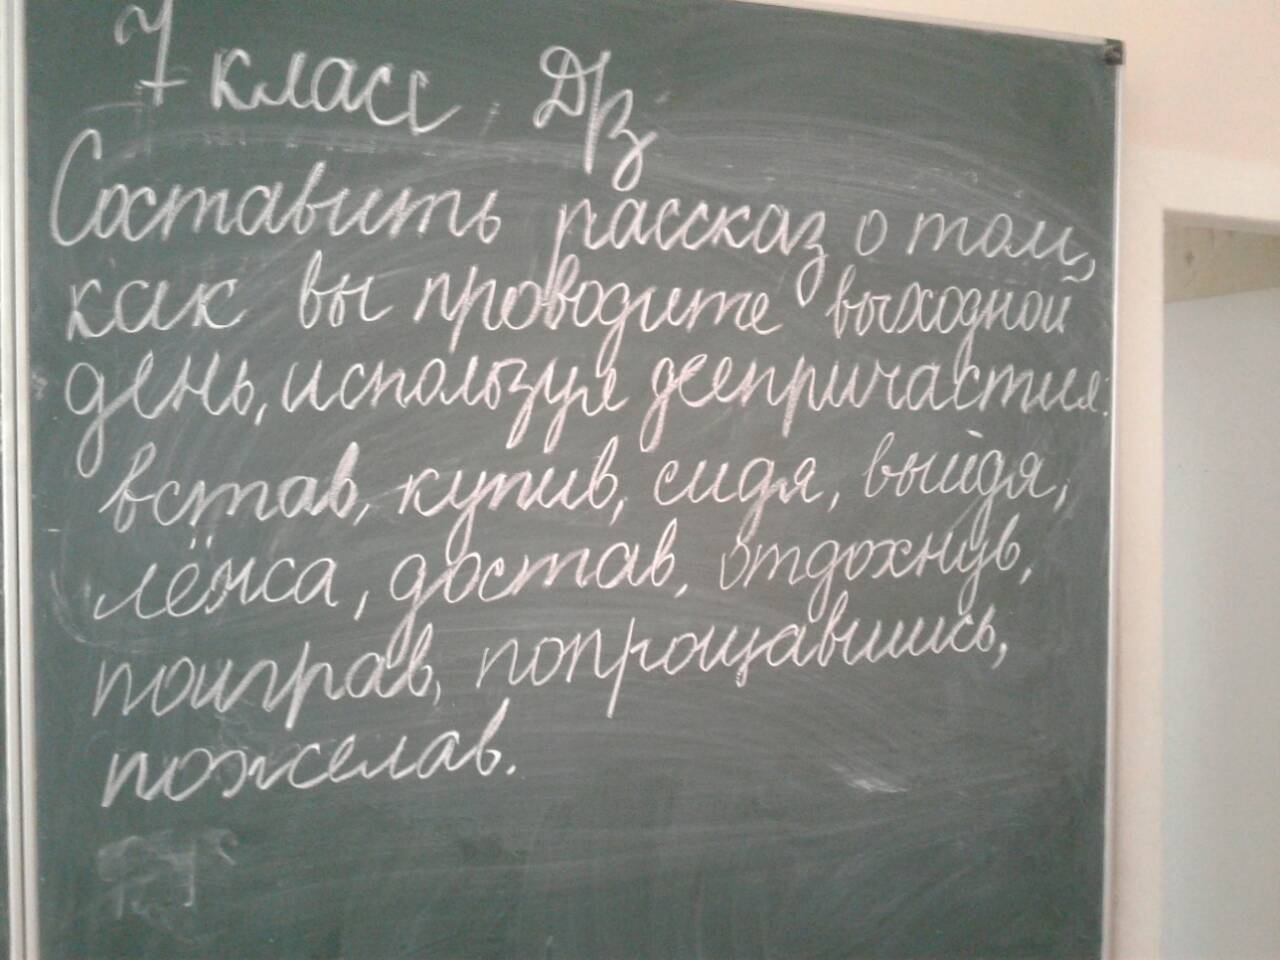 7 класс Д/з
Составить рассказ о том,
как вы проводите выходной
день, используя деепричастия:
встав, купив, сидя, выйдя,
лёжа, достав, отдохнув,
поиграв, попрощавшись,
пожелав.